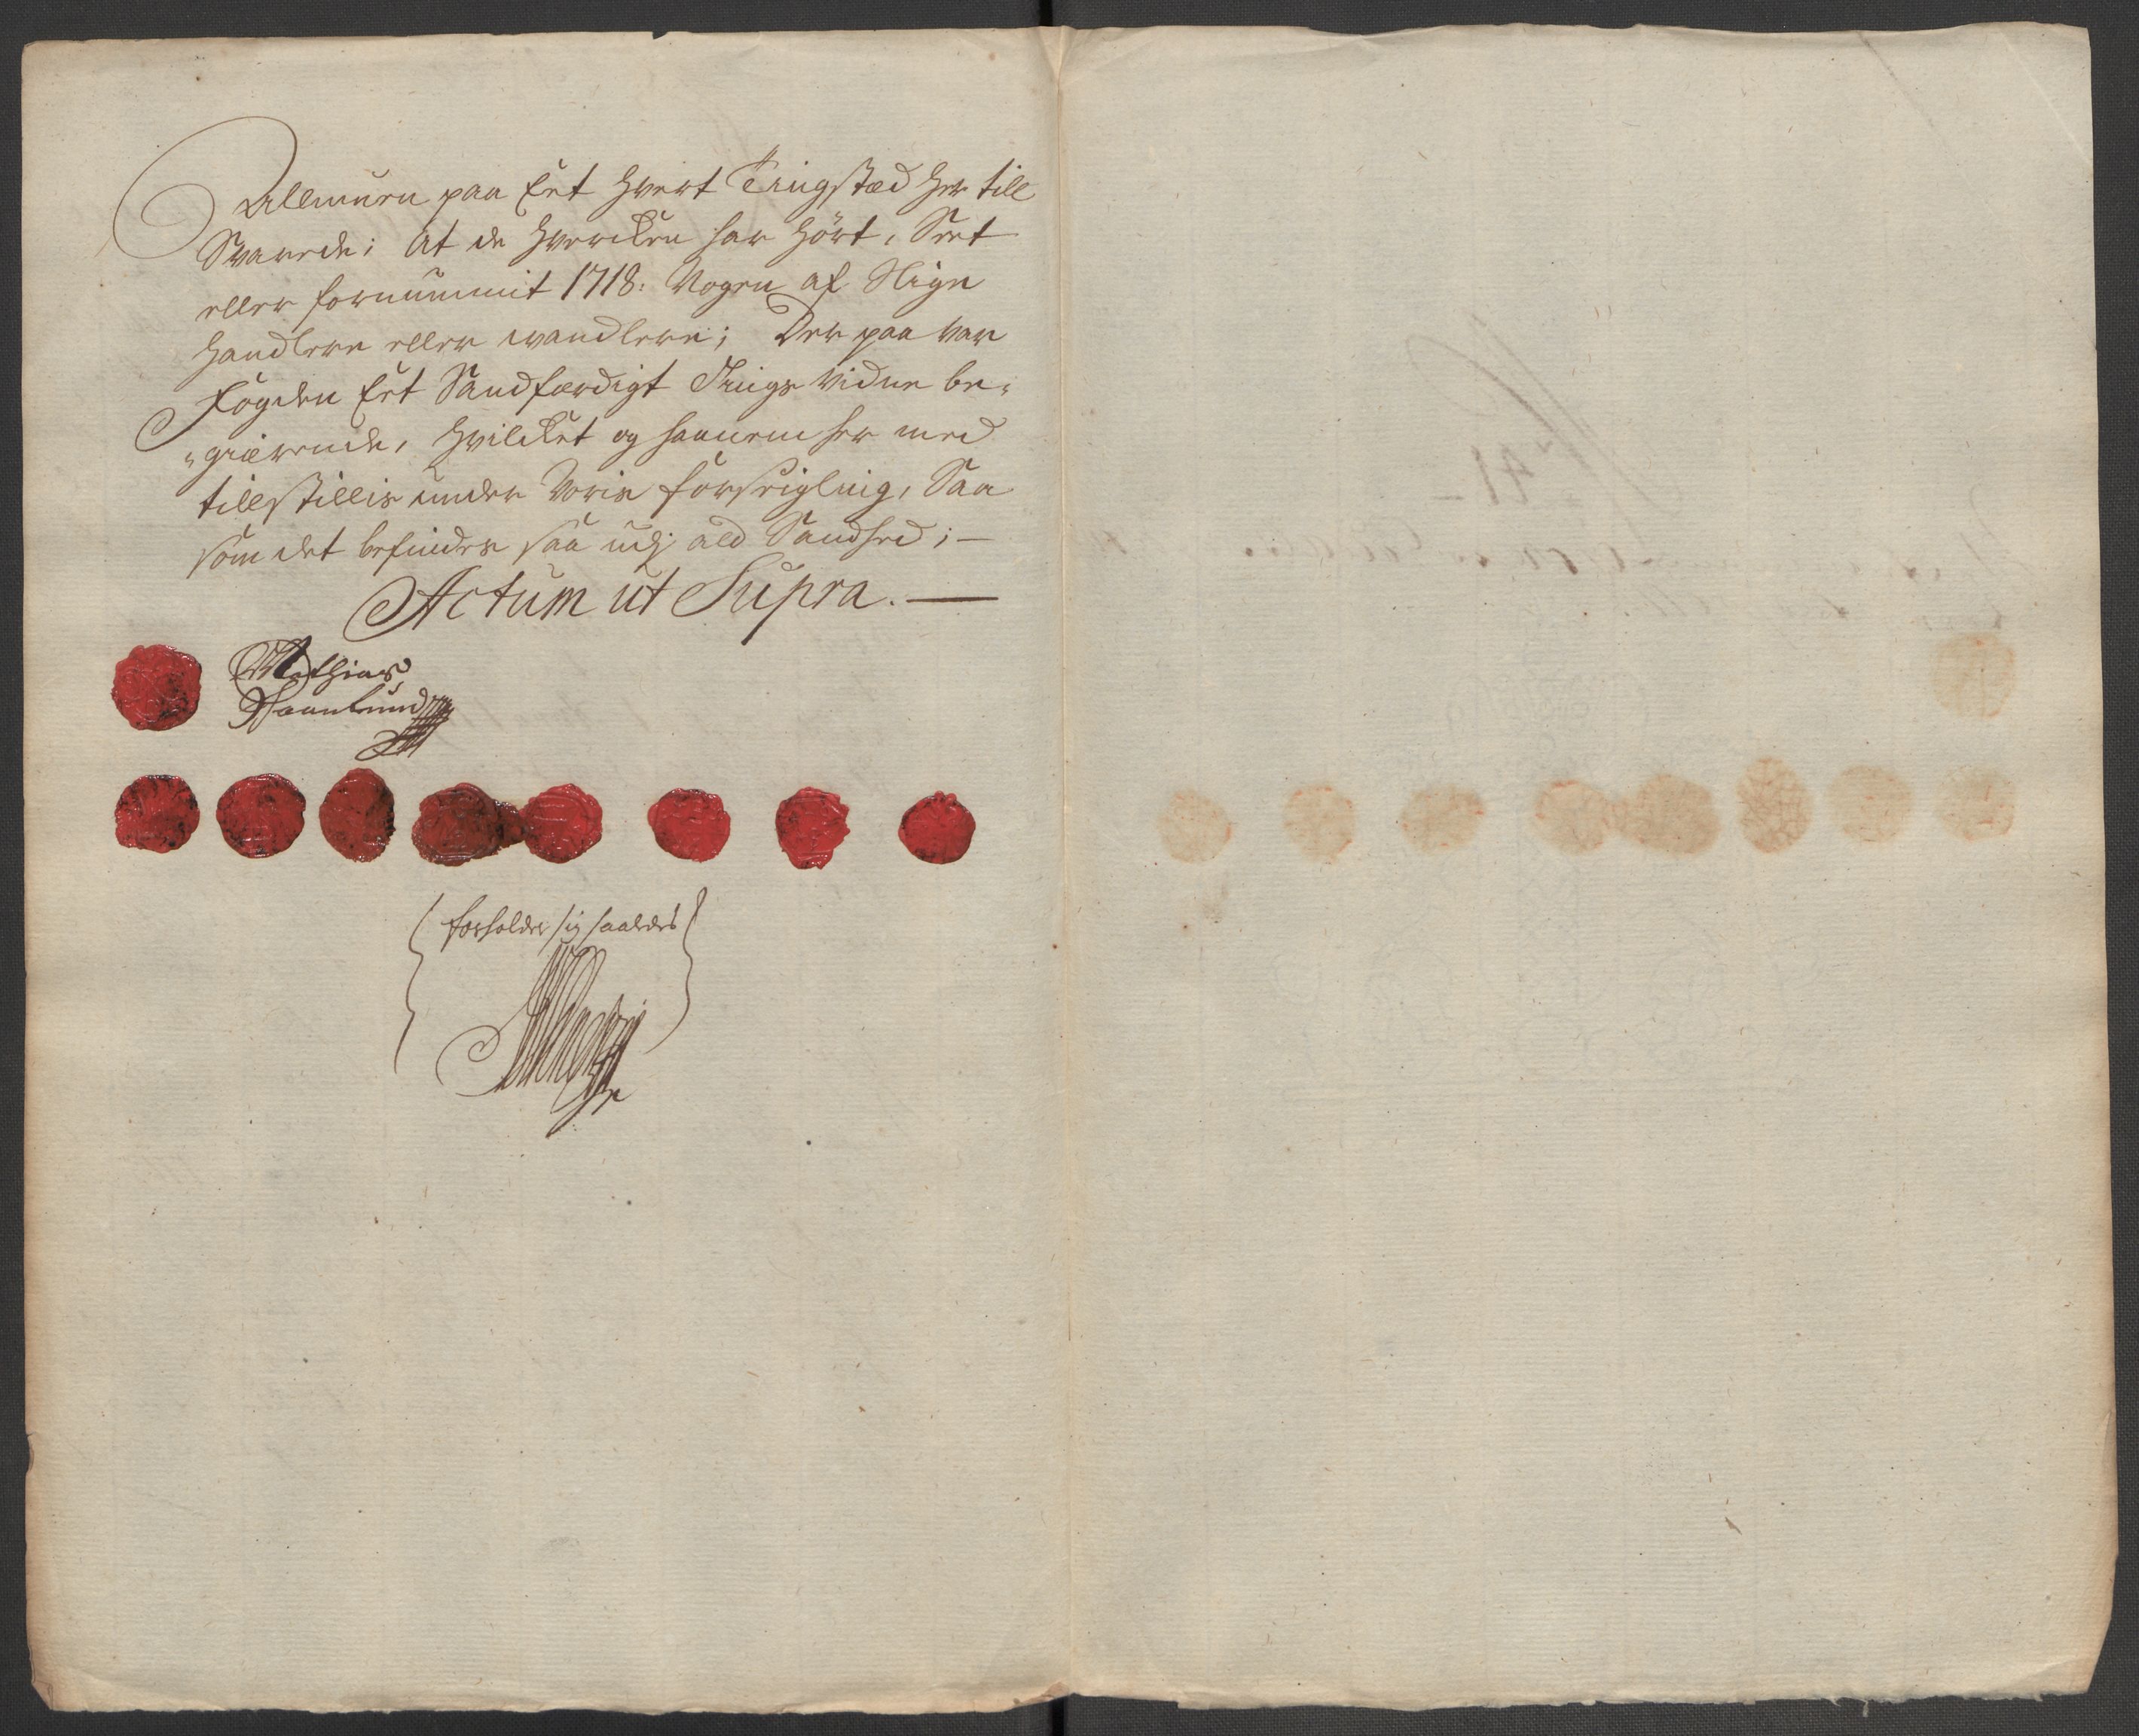 Allmuen paa Eet hvert Tingstæd her till
Svarede; At de hvercken har hört, Seet
eller fornummit 1718: Nogen af Slige
handlere eller wandlere; Der paa var
Fogden Eet Sandfærdigt Tings vidne be„
„giærende, hvilcket og hannem her med
tillstillis under Voris forseigling, Saa
som det befindes saa udj ald Sandhed; —
Actum ut Supra. —
Mathias
forholder sig saaledes
41